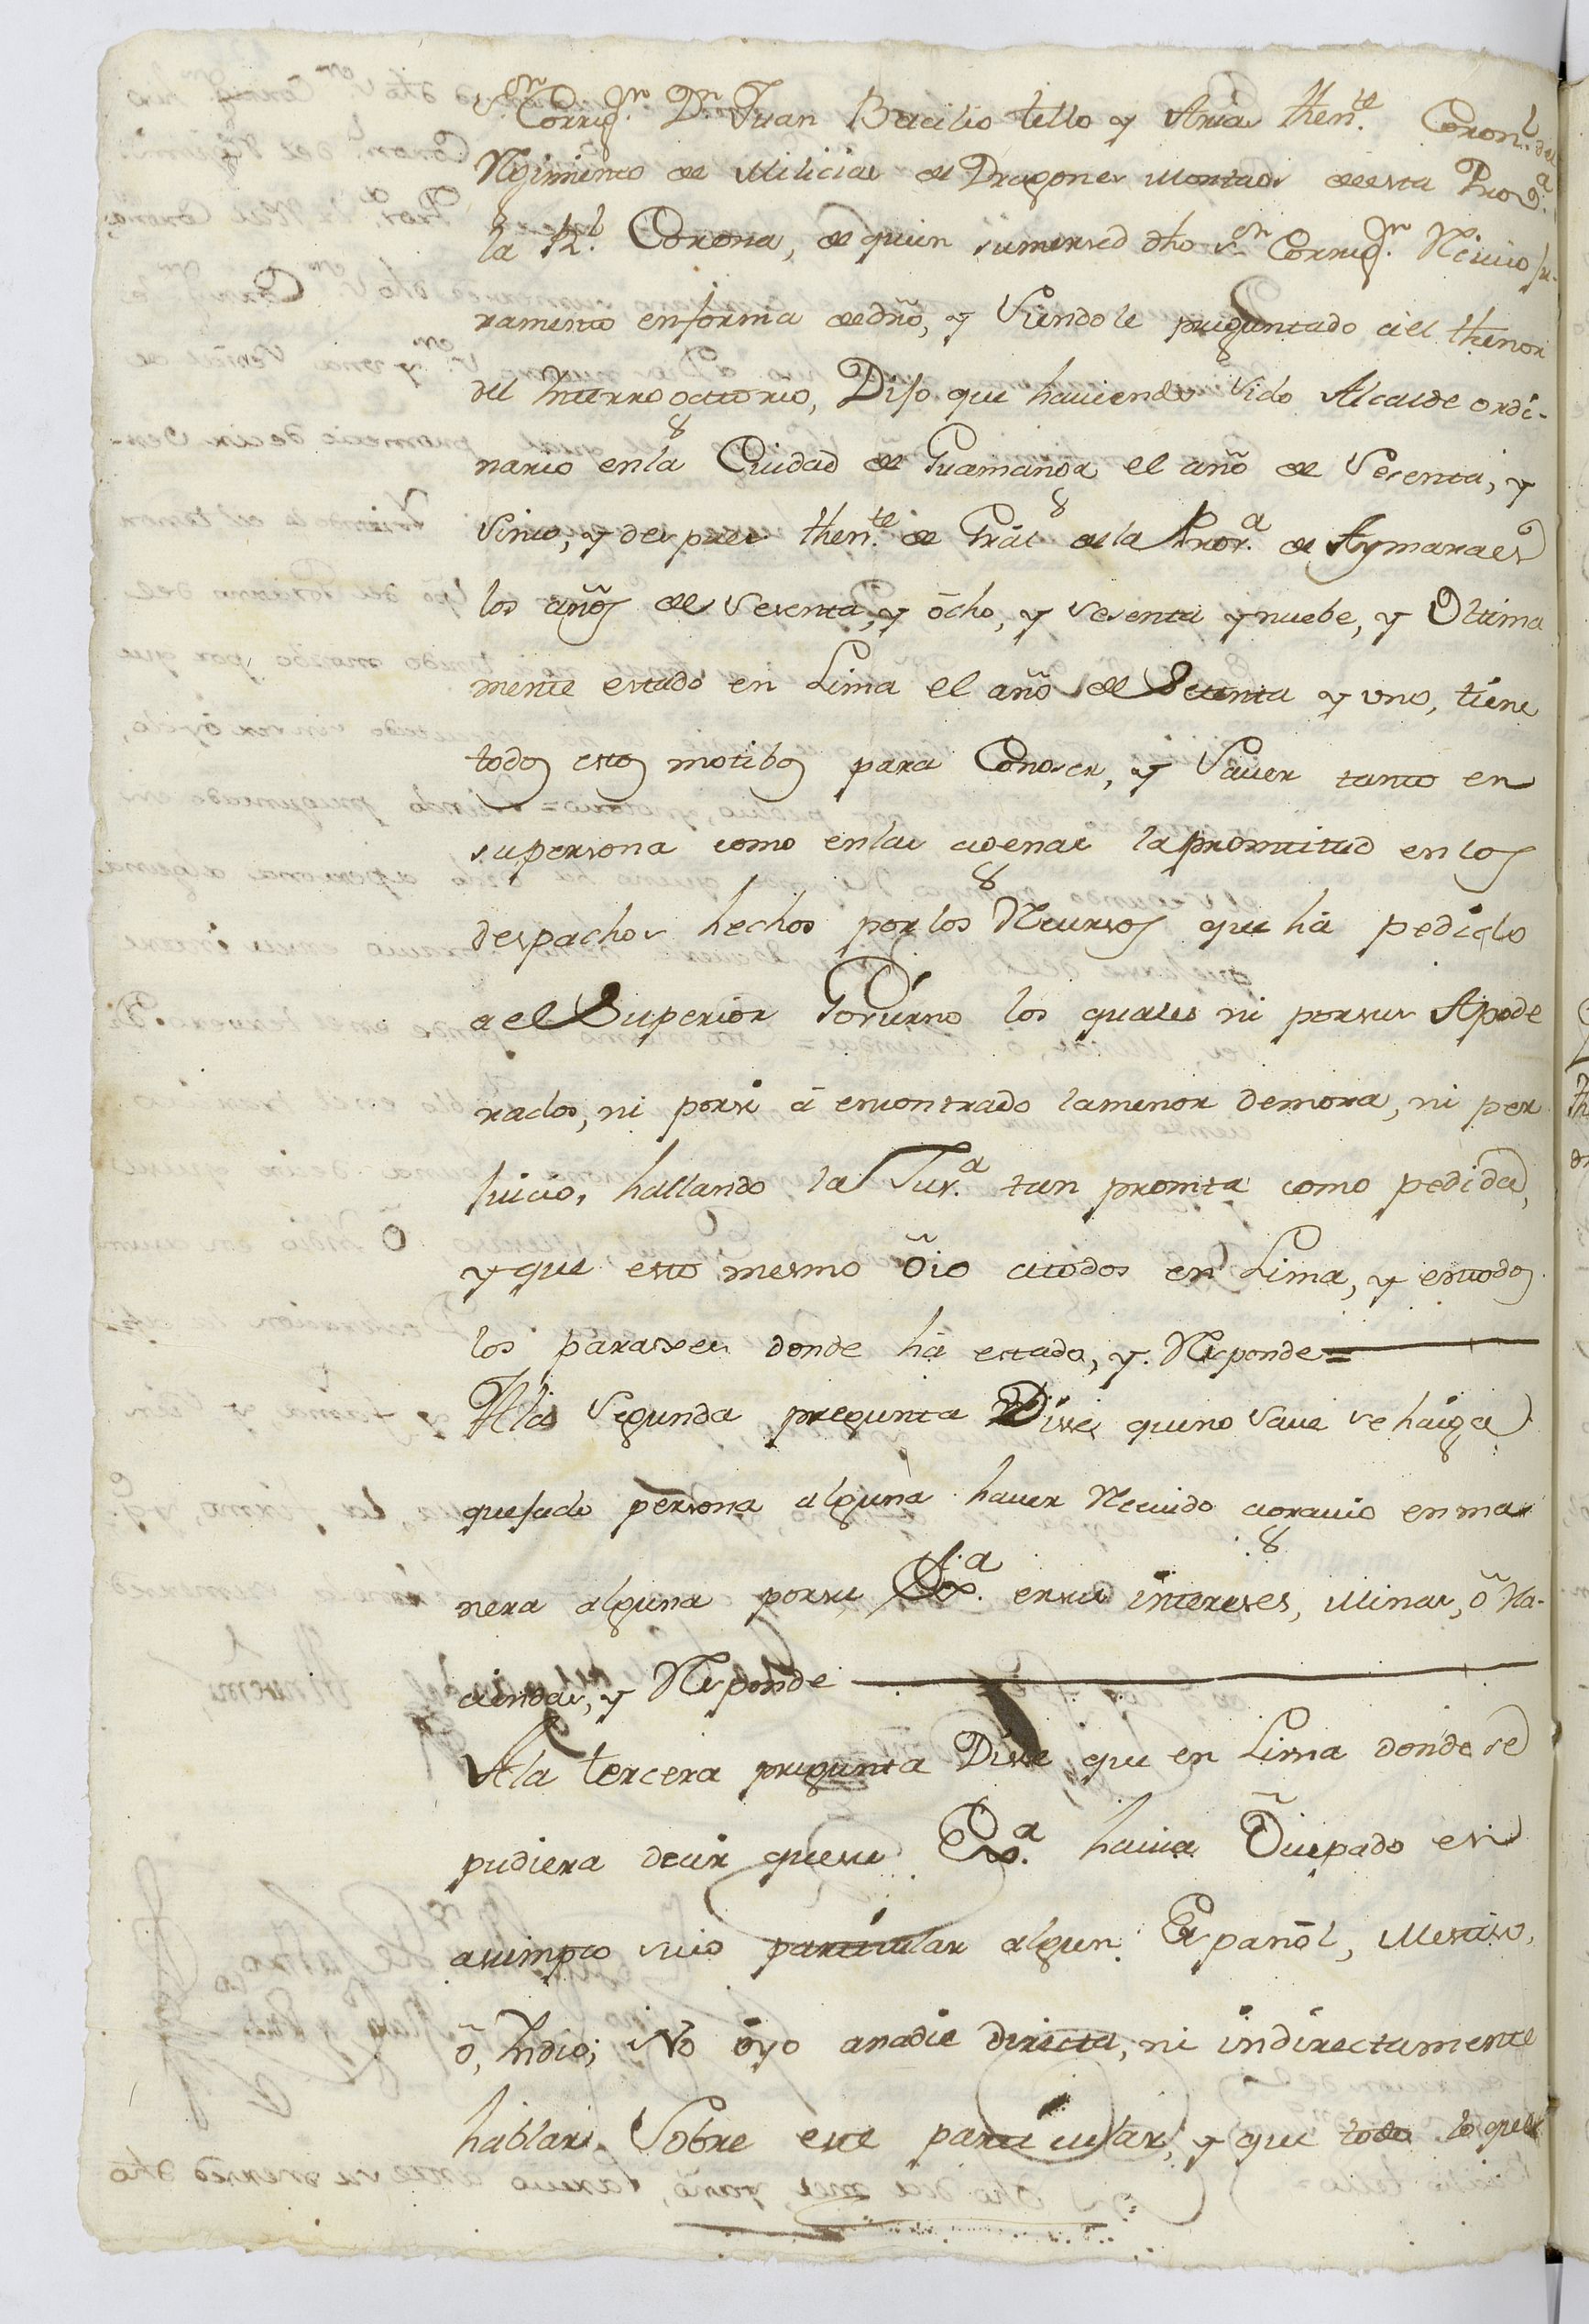 Sn. Corrigr. Dn. Juan Bacilio tello y Aria thente. Coronl. del
Regimiento de Milicias de Dragones Montados deesta Prova.
la Rl. Corona, de quien sumersed dho sn. Corrigr. Reciuio ju-
ramento enforma dedrõ, y Siendole preguntado ael thenor
del Interrogatorio, Dijo que haviendo Sido Alcalde ordi-
nario enla Ciudad de Guamanga el año de Sesenta, y
Sinco, y despues thente. de Gral dela Prova. de Aymaraes
los años de Sesenta, y ôcho, y Sesenta y nuebe, y Ultima
mente estado en Lima el año de Setenta y uno, tiene
todos estos motibos para Conoser, y Sauer tanto en
supersona como enlas agenas lapromtitud en los
despachos hechos por los Recursos que há pedido
a el Superior Govierno los quales ni porsus Apode
rados, ni porsi á encontrado lamenor demora, ni per
juicio, hallando la Jusa. tan promta como pedida,
y que esto mesmo ôio atodos en Lima, y entodos
los parasxes donde há estado, y Responde=
Ala Segunda pregunta Dixe, queno Saue se haiga
quejado persona alguna hauer Reciuido agrauio enma
nera alguna porsu Exa. ensus intereses, Minas, ô Ha-
ciendas, y Responde
Ala tercera pregunta Dixe que en Lima donde se
pudiera decir quesu Exa. hauia Ôcupado en
asumpto suio particular algun Español, Mestiso,
ô, Indio; No ôyo anadie directa, ni indirectamente
hablar Sobre este particular, y que todo lo que